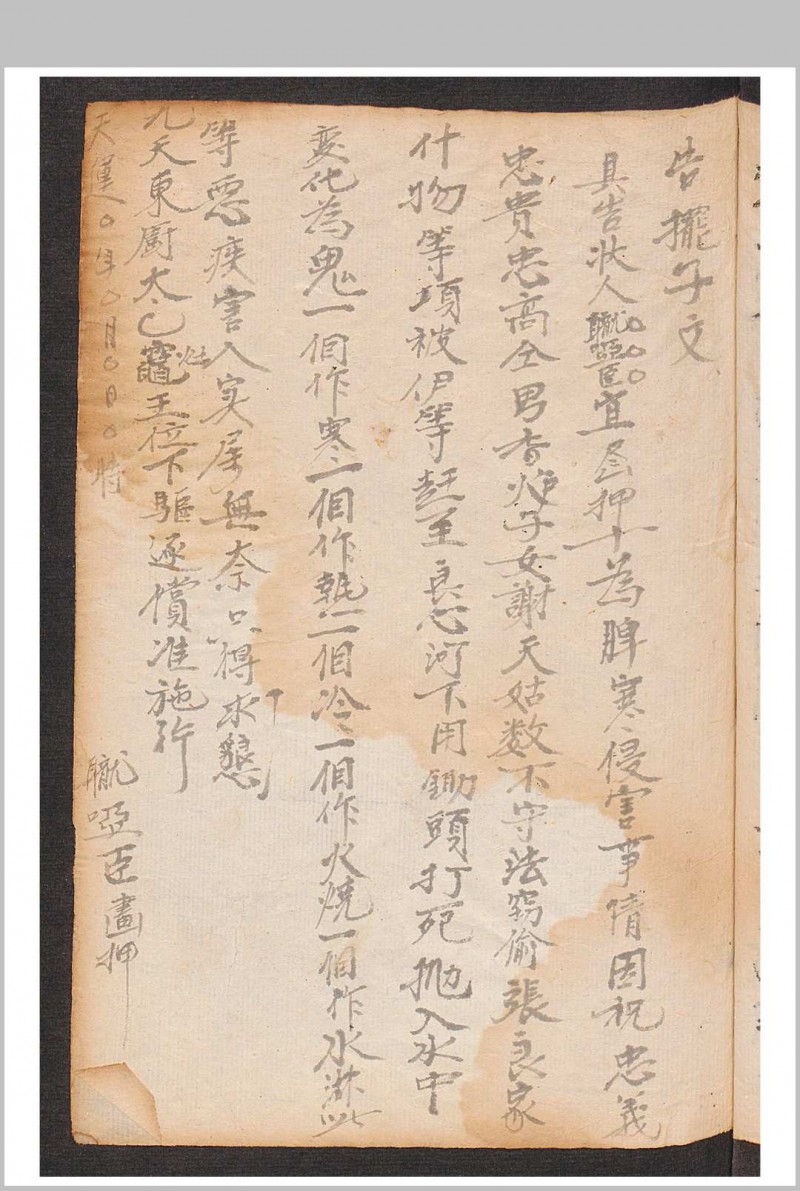 告擺子文
具告狀人職〇〇〇啞臣宜居押十為脾寒侵害事情因祝忠義
忠貴忠高全男香炉子女謝天姑数不守法窃偷張良家
什物等項被伊等赶至良心河下用鋤頭打死抛入水中
变化為鬼一個作寒一個作熱一個冷一個作火燒一個作水淋此
等惡疾害人实属無奈只得求懇
九天東廚太乙竈灶王位下驅逐償准施行
天運〇年〇月〇日〇時
職啞臣畫押